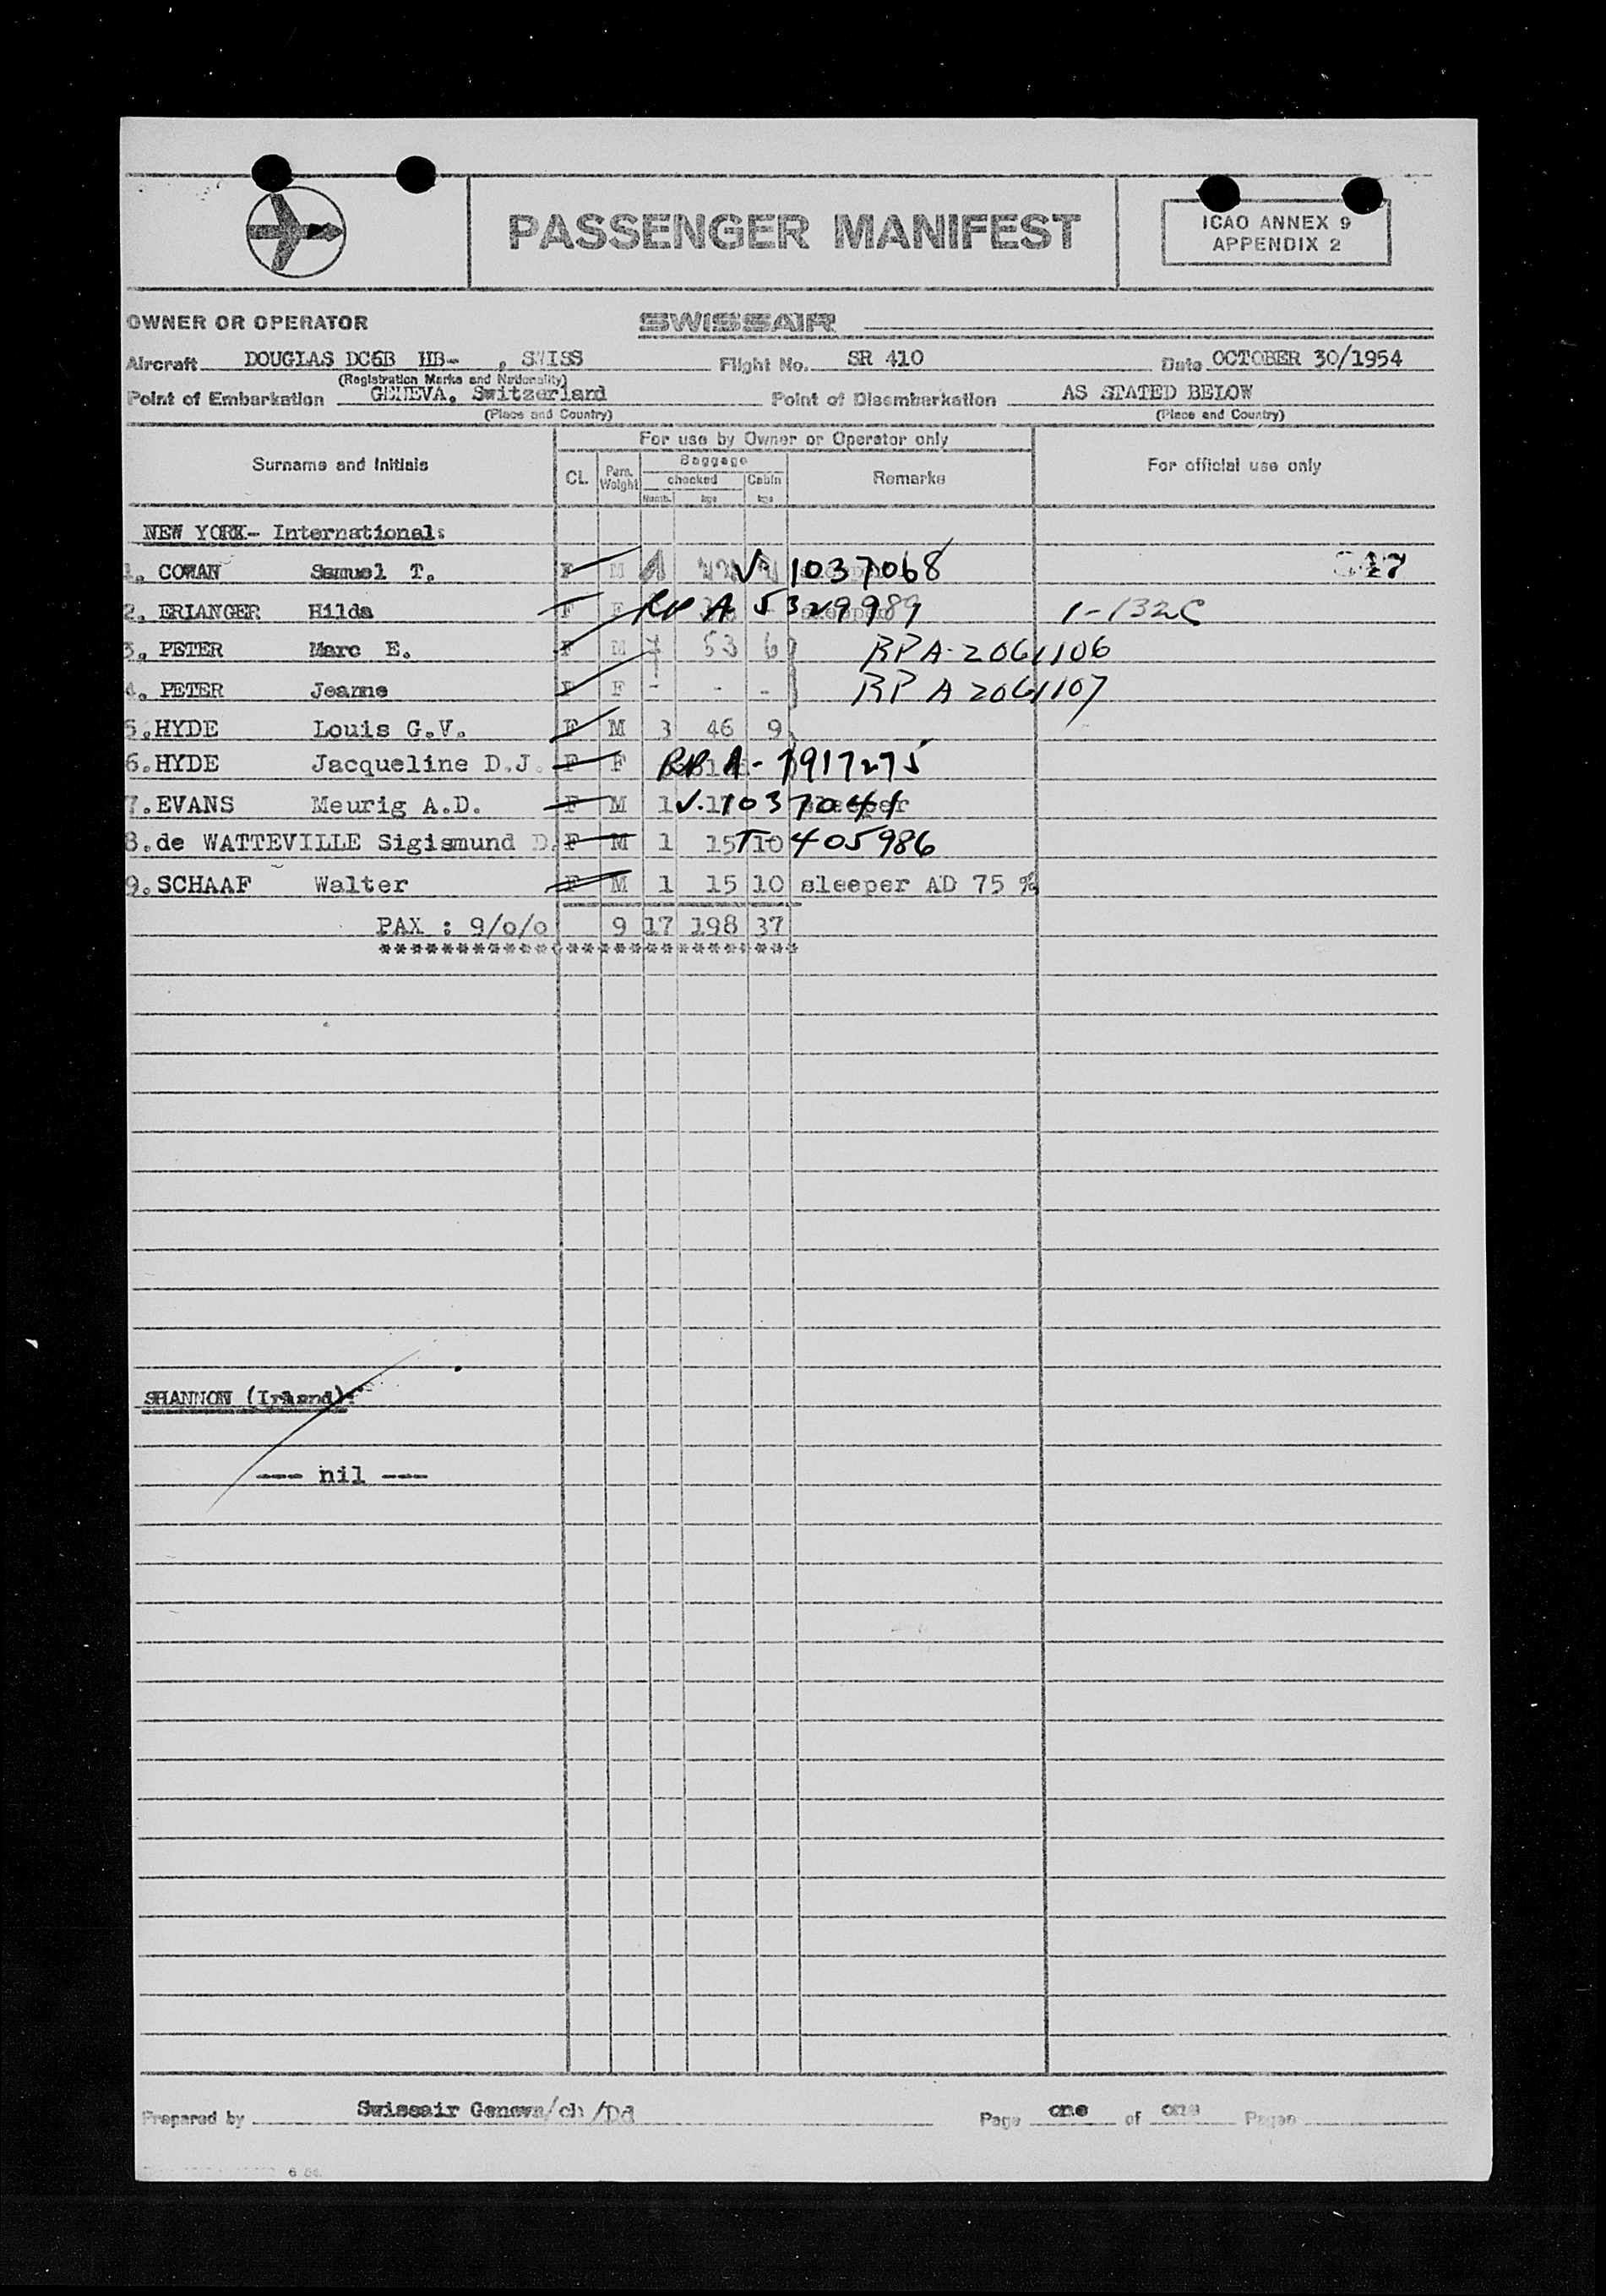 PASSENGER MANIFEST
ICAO ANNEX 9
APPENDIX 2
OWNER OR OPERATOR SWISSAIR
Aircraft DOUGLAS DC6B HB- , SWISS Flight No. SR 410 Date OCTOBER 30/1954
(Registration Marks and Nationality)
Point of Embarkation GENEVA, Switzerland Point of Disembarkation AS STATED BELOW
(Place and Country) (Place and Country)
For use by Owner or Operator only
Surname and Initials CL. Pers. Weight Baggage Remarks For official use only
checked Cabin
Numb. kgs kgs
NEW YORK- International:
1. COWAN Samuel T. F M V. 1037068
2. ERLANGER Hilda F F RP A 5329989 sleeper 1-132C
3. PETER Marc E. F M 7 53 6 RPA-2061106
4. PETER Jeanne F F - - - RP A 2061107
5.HYDE Louis G.V. F M 3 46 9
6.HYDE Jacqueline D.J. F F RP A-7917275
7.EVANS Meurig A.D. F M 1 V.1037041 sleeper
8.de WATTEVILLE Sigismund D. F M 1 15 10 T-405986
9.SCHAAF Walter F M 1 15 10 sleeper AD 75 %
PAX : 9/o/o 9 17 198 37
****************************************
SHANNON (Ireland):
--- nil ---
Prepared by Swissair Geneva/ch/Dd Page one of one Pages